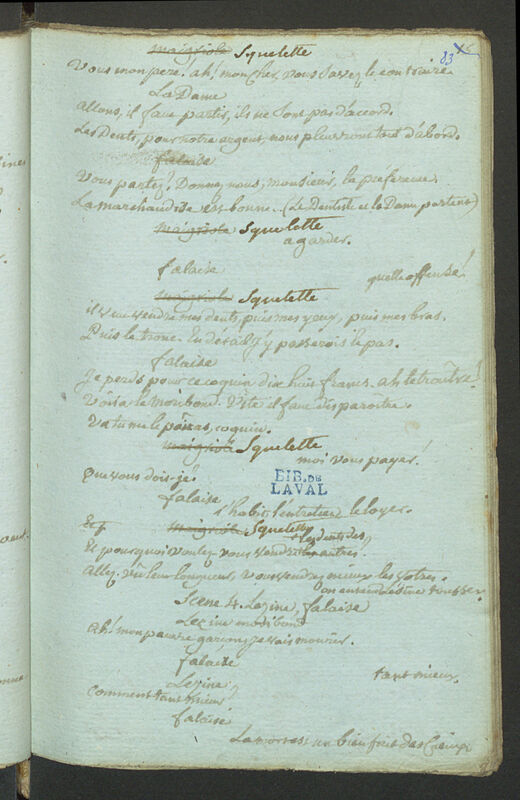 83
maigriole Squelette
Vous mon pere! ah! mon cher, vous savez le contraire.
La Dame
allons, il faut partir, ils ne sont pas d'accord.
Les Dents, pour notre argent, nous pleuvront tout d'abord.
falaise
Vous partez! Donnez nous, monsieur, la preference.
La marchandise est bonne. (Le Dentiste et la Dame partent)
maigriole Squelette
a garder.
falaise
quelle offense!
maigriole Squelette
il veut vendre mes dents, puis mes yeux, puis mes bras.
Puis le tronc. En détail j'y passerois le pas.
falaise
Je perds pour ce coquin dix huit francs. ah le traître!
Voisa le moribond. Vite il faut disparoître.
Va tu me le païras, coquin.
maigriole Squelette
moi vous payer!
que vous dois-je?
BIB. DE
LAVAL
falaise
l'habit, l'entretien, le loyer.
Et
maigriole Squelette
Et pourquoi voulez vous vendre les dents des autres.
allez, vu leur longueur, vous vendrez mieux les votres.
on entend Lésine tousser
Scene 4. Lezine, falaise
Lezine moribond
ah! mon pauvre garçon, je vais mourir.
falaise
tant mieux.
Lezine
Comment tant mieux
falaise
La mort est un bienfait des Cieux